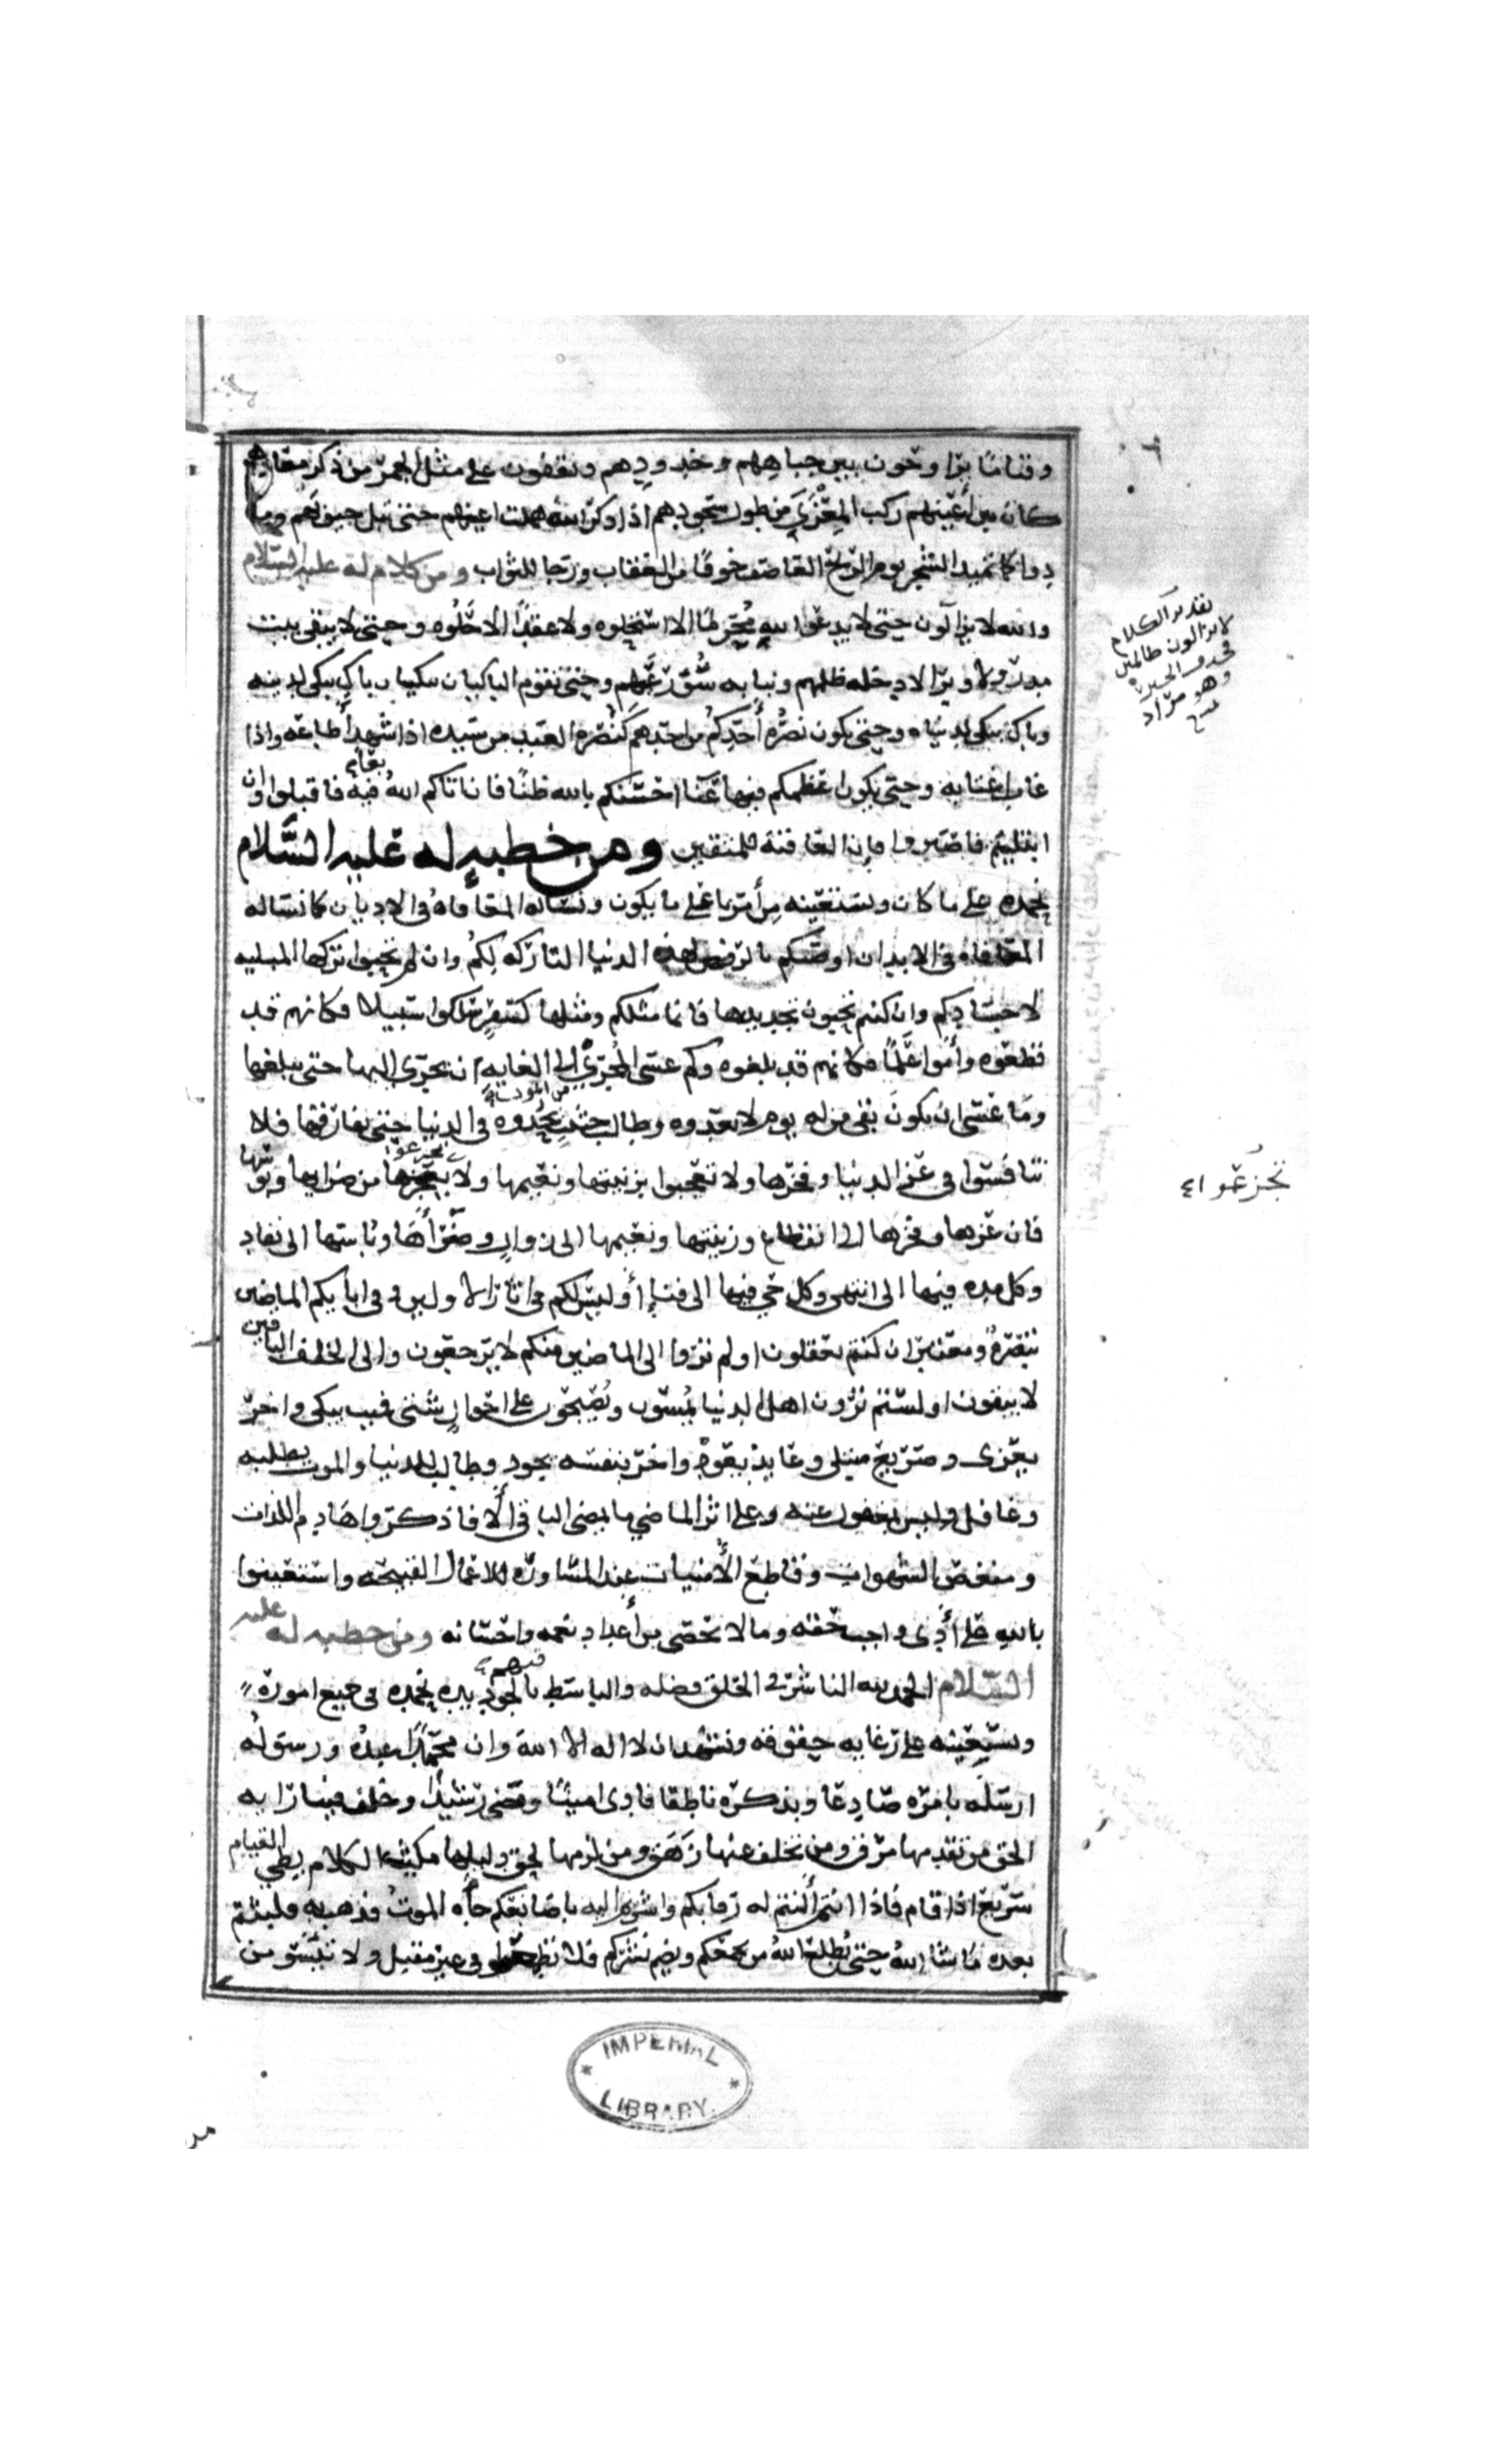 وقياما يراوحون بين جباههم وخدودهم ويقفون على مثل الجمر من ذكر معادهم
كان بين أعينهم ركب المعزى من طول سجودهم اذا ذكر الله هملت اعينهم حتى تبل جيوبهم وما
دوا كما تميد الشجر يوم الريح العاصف خوفا من العقاب ورجا للثواب ومن كلام له عليه السلام
والله لا يزالون حتى لا يدعوا لله محرما الا استحلوه ولا عقدا الا حلوه وحتى لا يبقى بيت
مدر ولا وبر الا دخله ظلمهم ونبا به سوء رعيهم وحتى يقوم الباكيان يبكيان باك يبكي لدينه
وباك يبكي لدنياه وحتى يكون نصرة أحدكم من احدهم كنصرة العبد من سيده اذا شهد أطاعه واذا
غاب اغتابه وحتى يكون اعظمكم فيها عنا احسنكم بالله ظنا فان اتاكم الله فيه بعافية فاقبلوا وان
ابتليتم فاصبروا فان العاقبة للمتقين ومن خطبه له عليه السلام
نحمده على ما كان ونستعينه من أمرنا على ما يكون ونساله المعافاه في الاديان كما نساله
المعافاه في الابدان اوصيكم بالرفض لهذه الدنيا التاركه لكم وان لم تحبوا تركها المبليه
لاجسادكم وان كنتم تحبون تجديدها فانما مثلكم ومثلها كسفر سلكوا سبيلا فكانهم قد
قطعوه وأموا علما فكانهم قد بلغوه وكم عسى المجري الى الغايه ان يجري اليها حتى يبلغها
وما عسى ان يكون بقى من له يوم لا يعدوه وطالب حثيث من الموت يحدوه في الدنيا حتى يفارقها فلا
تنافسوا في عز الدنيا وفخرها ولا تعجبوا بزينتها ونعيمها ولا تجزعوا من ضرايها وبوسها
فان عزها وفخرها الى انقطاع وزينتها ونعيمها الى زوال وضراها وباسها الى نفاد
وكل مده فيها الى انتهى وكل حي فيها الى فناء أوليس لكم في اثار الاولين وفي ابايكم الماضين
تبصرة ومعتبر ان كنتم تعقلون اولم تروا الى الماضين منكم لا يرجعون والى الخلف الباقين
لا يبقون اولستم ترون اهل الدنيا يمسون ويصبحون على احوال شتى فميت يبكى واخر
يعزى وصريع مبتلى وعايد يعود واخر بنفسه يجود وطالب للدنيا والموت يطلبه
وغافل وليس بمغفول عنه وعلى اثر الماضي ما يمضى الباقي ألا فاذكروا هادم اللذات
ومنغص الشهوات وقاطع الأمنيات عند المساورة للاعمال القبيحه واستعينوا
بالله على أدى واجب حقه وما لا يحصى من أعداد نعمه واحسانه ومن خطبه له عليه
السلام الحمد لله الناشر في الخلق فضله والباسط فيهم بالجود يده نحمده في جميع اموره
ونستعينه على رعايه حقوقه ونشهد ان لا اله الا الله وان محمدا عبده ورسوله
ارسله بامره صادعا وبذكره ناطقا فادى امينا ومضى رشيدا وخلف فينا رايه
الحق من تقدمها مرق ومن تخلف عنها زهق ومن لزمها لحق دليلها مكيث الكلام بطي القيام
سريع اذا قام فاذا انتم ألنتم له رقابكم واشرتم اليه باصابعكم جاءه الموت فذهب به فلبثتم
بعده ما شا الله حتى يطلع الله من يجمعكم ويضم نشركم فلا تطمعوا في غير مقبل ولا تيئسو من
تقدير الكلام
لا يزالون ظالمين
فحذف الخبر
وهو مراد
تجزعوا
IMPERIAL
LIBRARY